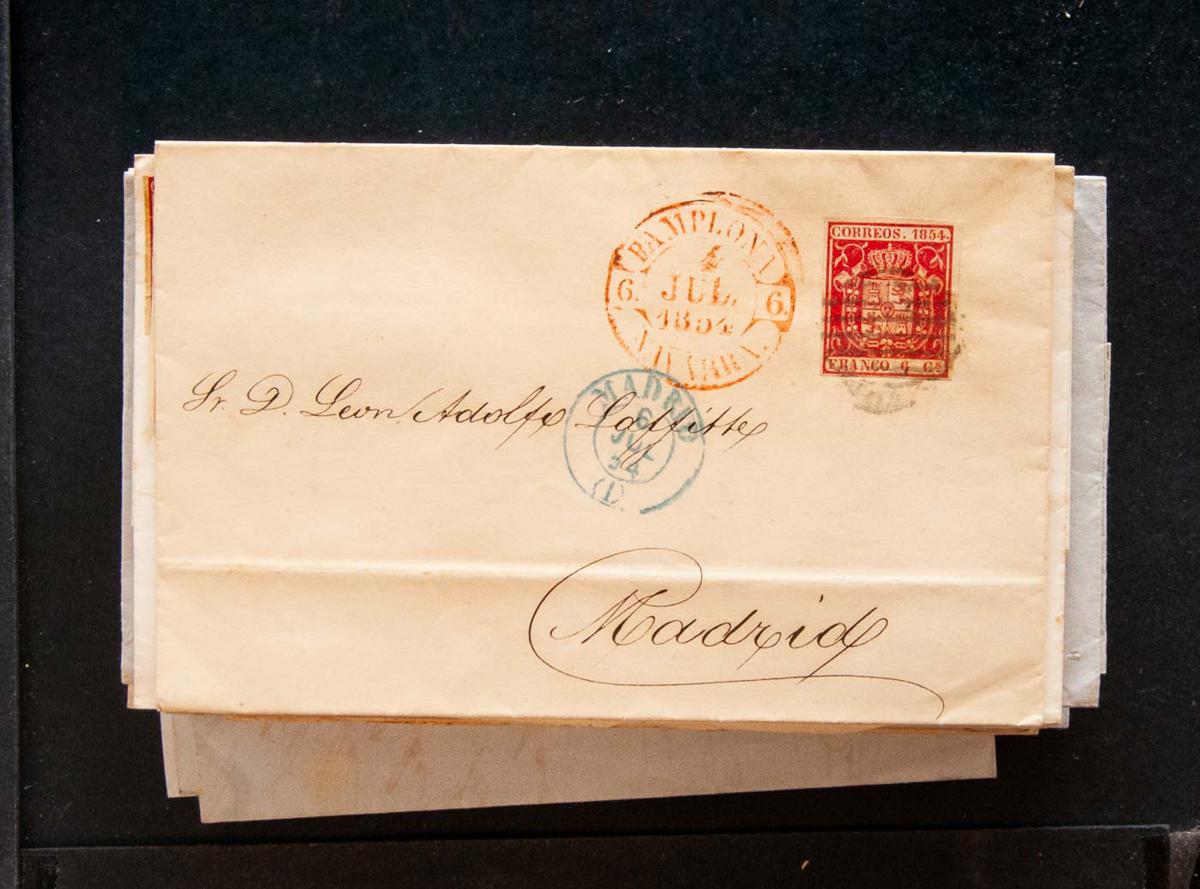 PAMPLONA
4
JUL.
1854
6. 6.
NAVARRA.
CORREOS. 1854.
FRANCO 6 Cs
Sr. D. Leon Adolfo Laffitte
MADRID
6
JUL
54
(1).
Madrid